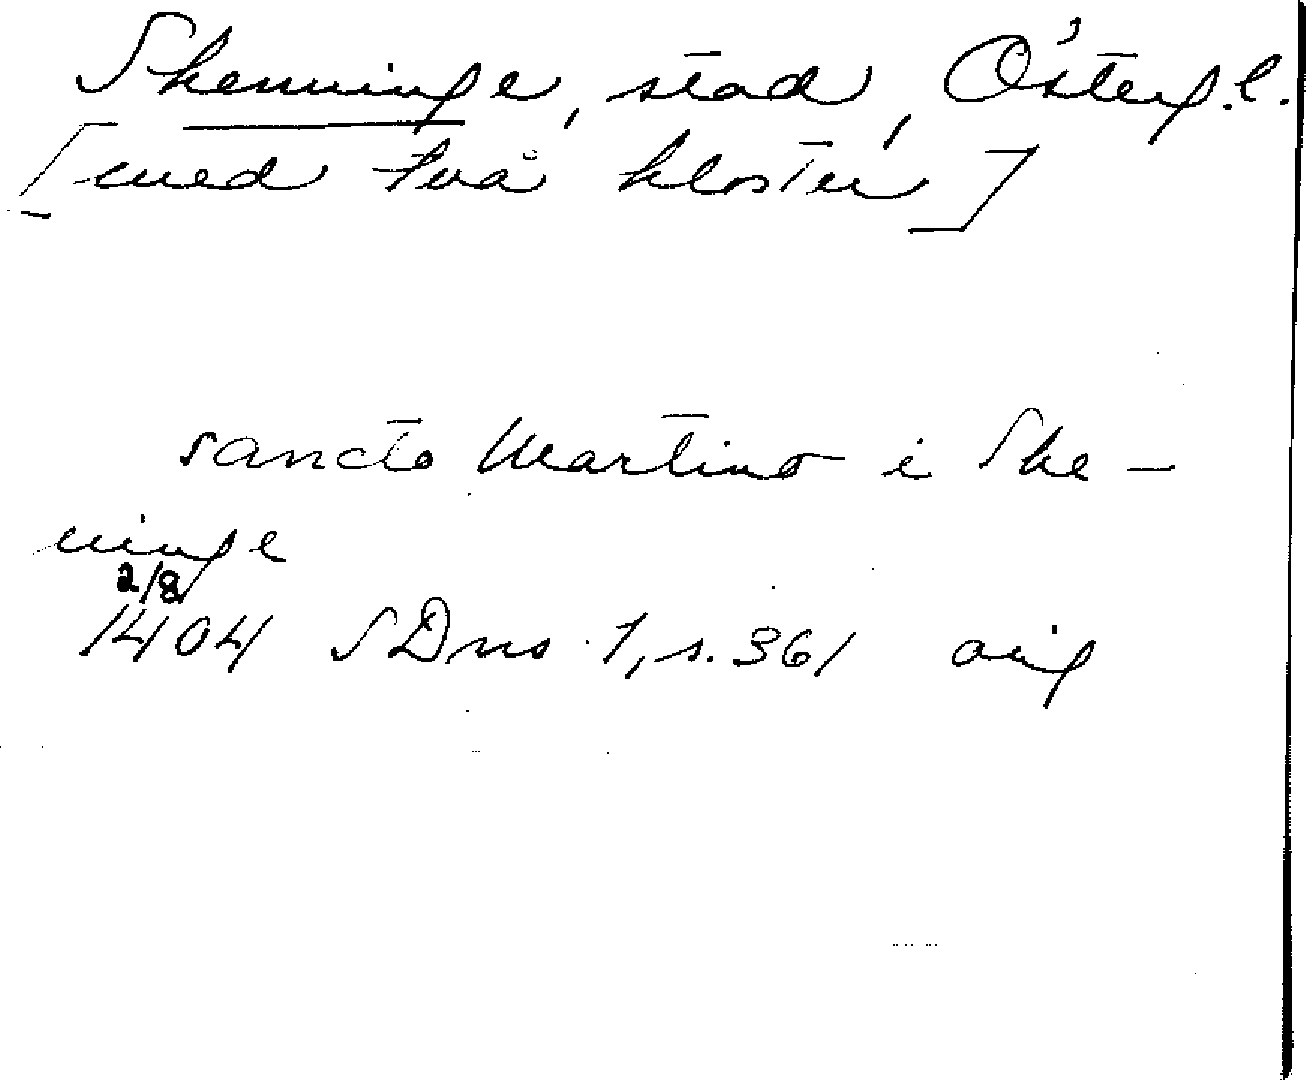 Skenninge, stad, Österg.l.
[med två kloster]
sancto Martino i Ske-
ninge
2/8
1404 SDns 1, s. 361 orig